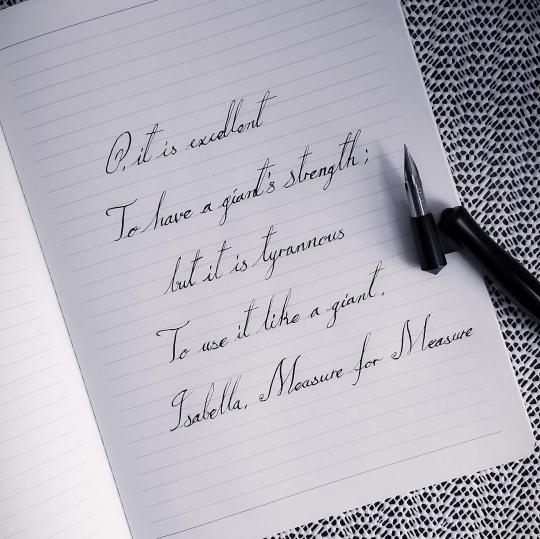 O, it is excellent
To have a giant's strength;
but it is tyrannous
To use it like a giant.
Isabella, Measure for Measure